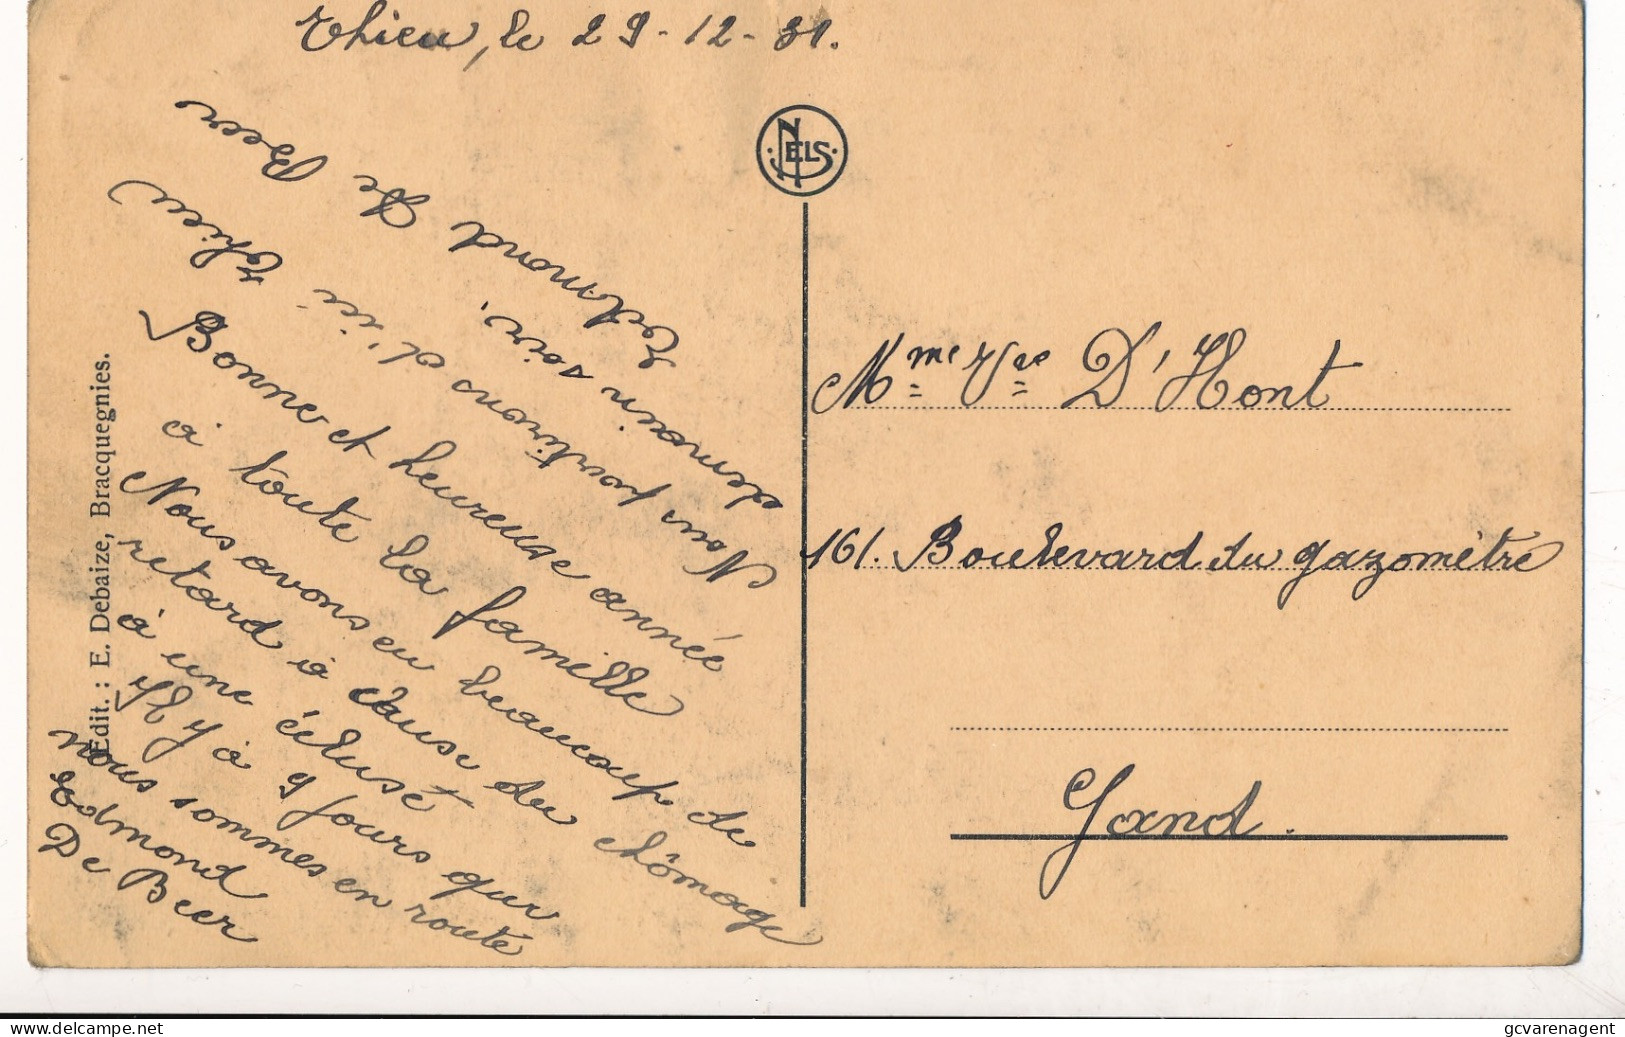 Thieu, le 29-12-31.
NELS
Bonne et heureuse année
à toute la famille
Nous avons eu beaucoup de
retard à cause du chômage
à une écluse
Il y a 9 jours que
nous sommes en route
Edmond
De Beer
Nous partirons d'ici Thieu
demain soir.
Edmond De Beer
Edit. : E. Debaize, Bracquegnies.
Mme Vve D'Hont
161. Boulevard du gazomètre
Gand.
delcampe.net
gcvarenagent